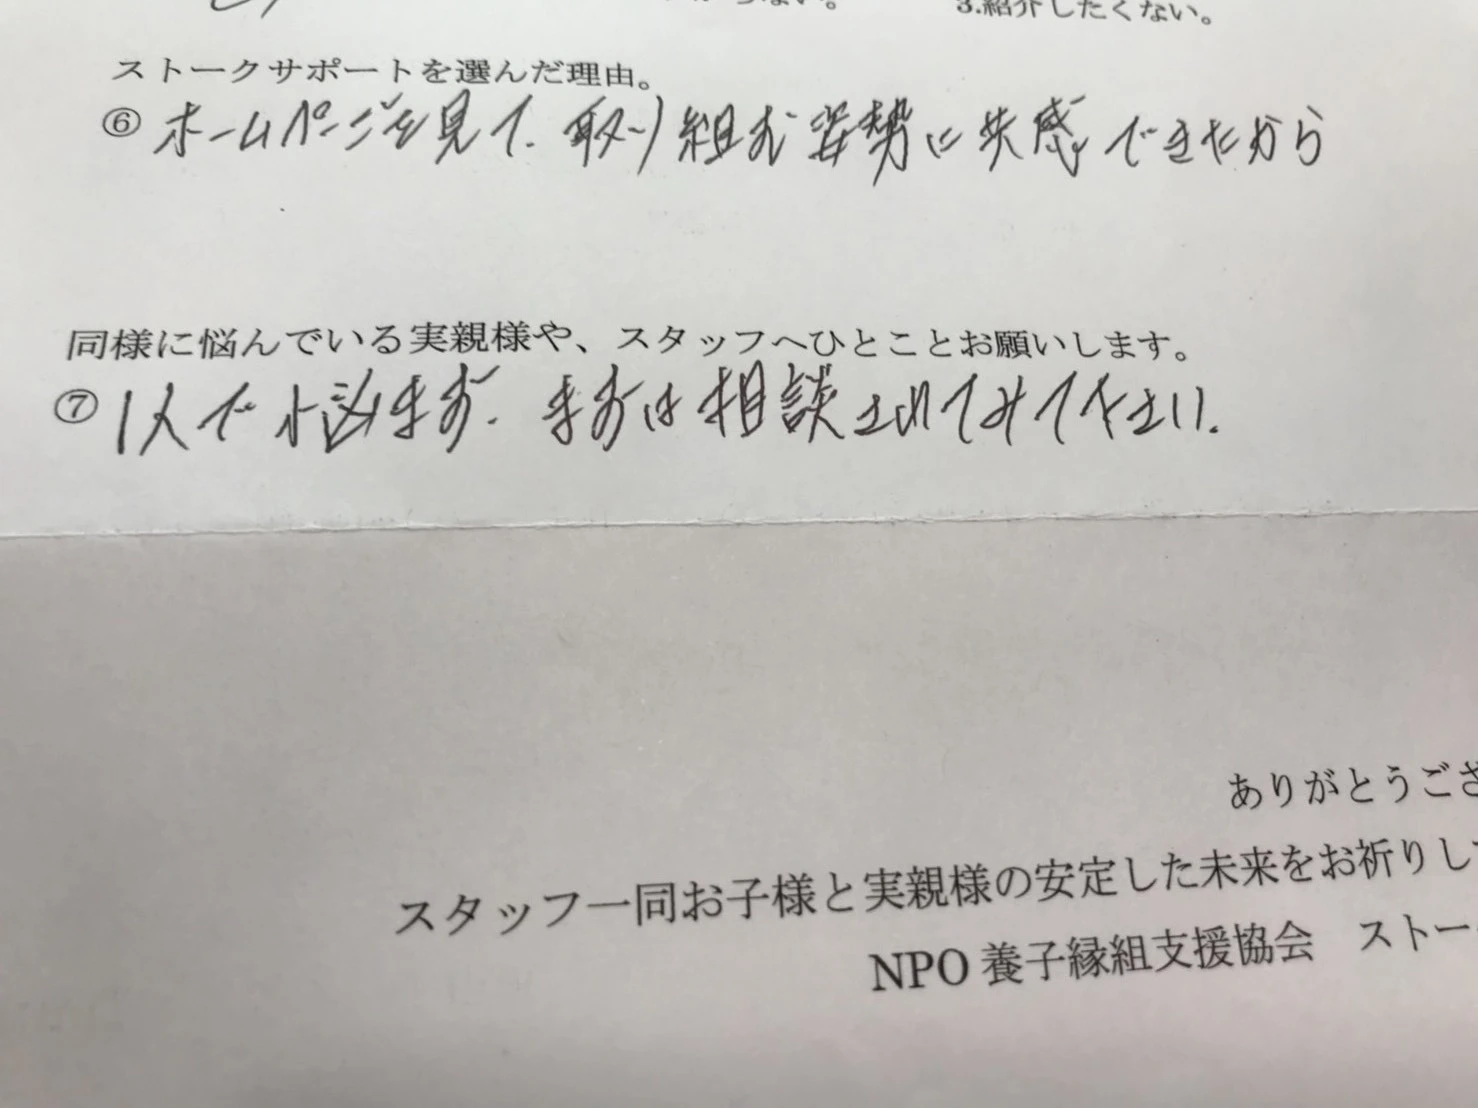 3.紹介したくない。
ストークサポートを選んだ理由。
⑥ ホームページを見て、取り組む姿勢に共感できたから
同様に悩んでいる実親様や、スタッフへひとことお願いします。
⑦ 1人で悩まず、まずは相談されてみて下さい。
ありがとうござ
スタッフ一同お子様と実親様の安定した未来をお祈りして
NPO 養子縁組支援協会　ストー